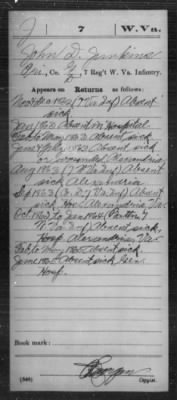 J 7 W. Va.
John D. Jenkins
Pri., Co. , 7 Reg't W. Va. Infantry.
Appears on Returns as follows:
Nov & Dec 1862 (7 Va Inf) Absent
sick
Jan 1863 Absent in Hospital
Feb to May 1863 Absent sick
June & July 1863 Absent sick
or wounded Alexandria
Aug 1863 (7 W Va Inf) Absent
sick Alexandria
Sep 1863 (7 Va Inf) Absent
sick Hos. Alexandria, Va
Oct. 1863 to Jan 1864 (7
W. Va Inf) Absent sick,
Hosp. Alexandria, Va.
Feb to May 1864 Absent sick.
June 1864 Absent sick Gen.
Hosp.
Book mark:
(546)
Copyist.